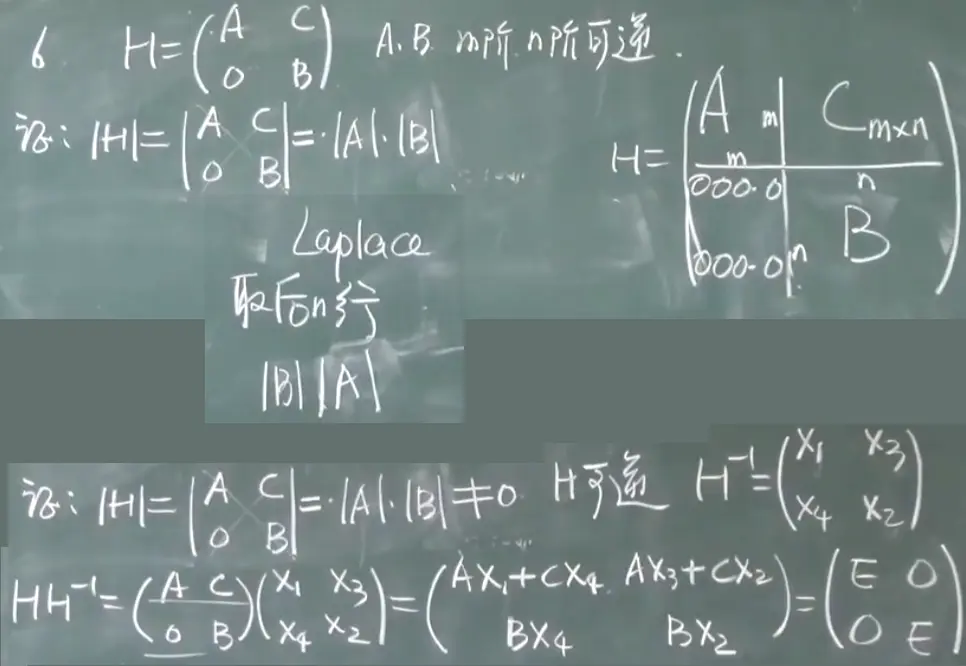 6 H=(A C
0 B) A.B m阶.n阶可逆.
证: |H|=|A C
0 B|=·|A|·|B|
H=(A m | C m×n
m
000·0 | n
B
000·0 | n)
Laplace
取后n行
|B||A|
证: |H|=|A C
0 B|=·|A|·|B|≠0 H可逆 H⁻¹=(X₁ X₃
X₄ X₂)
HH⁻¹=(A C
0 B)(X₁ X₃
X₄ X₂)=(AX₁+CX₄ AX₃+CX₂
BX₄ BX₂)=(E O
O E)